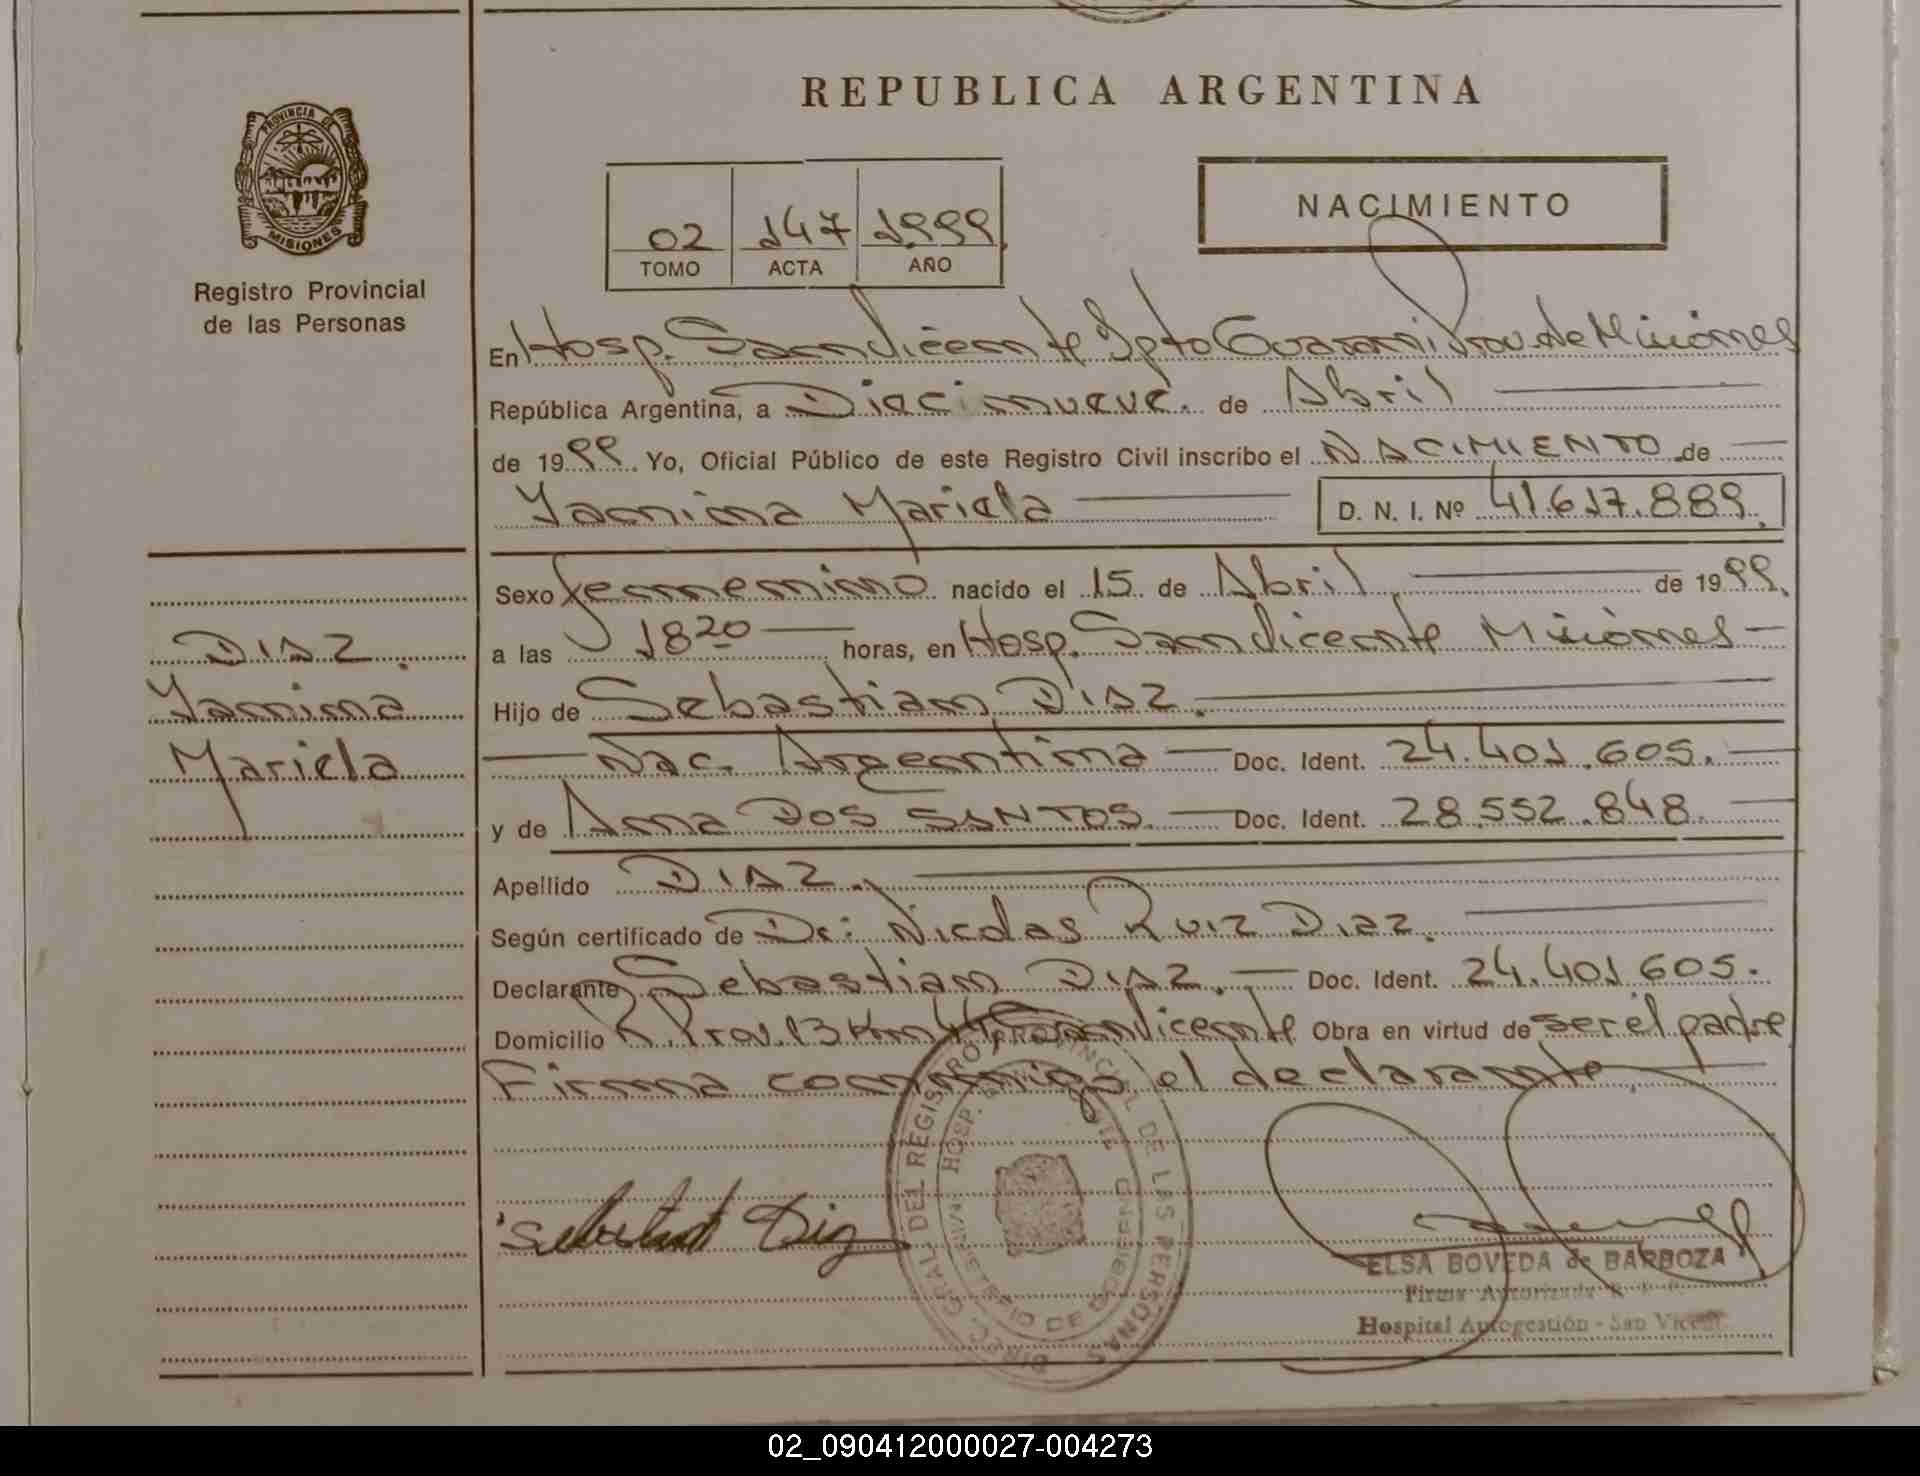 REPUBLICA ARGENTINA
PROVINCIA DE
MISIONES
Registro Provincial
de las Personas
02 147 1999
TOMO ACTA AÑO
NACIMIENTO
En Hosp. San Vicente Dpto Guarani Prov. de Misiones
República Argentina, a Diecinueve. de Abril
de 1999. Yo, Oficial Público de este Registro Civil inscribo el NACIMIENTO de
Yamima Mariela D. N. I. Nº 41.617.889.
Sexo femenino nacido el 15 de Abril de 1999.
a las 18 20 horas, en Hosp. San Vicente Misiones
Hijo de Sebastian DIAZ.
Nac. Argentina Doc. Ident. 24.401.605.
y de Anna DOS SANTOS. Doc. Ident. 28.552.848.
Apellido DIAZ.
Según certificado de Dr: Nicolas Ruiz Diaz.
Declarante Sebastian DIAZ. Doc. Ident. 24.401.605.
Domicilio R. Prov. 13 Km San Vicente Obra en virtud de ser el padre
Firma conmigo el declarante.
DIAZ.
Yamima
Mariela
Sebastian Diaz
DIREC. GRAL. DEL REGISTRO PROVINCIAL DE LAS PERSONAS
HOSP.
ELSA BOVEDA de BARBOZA
Firma Autorizada
Hospital Autogestión - San Vicente
02_090412000027-004273